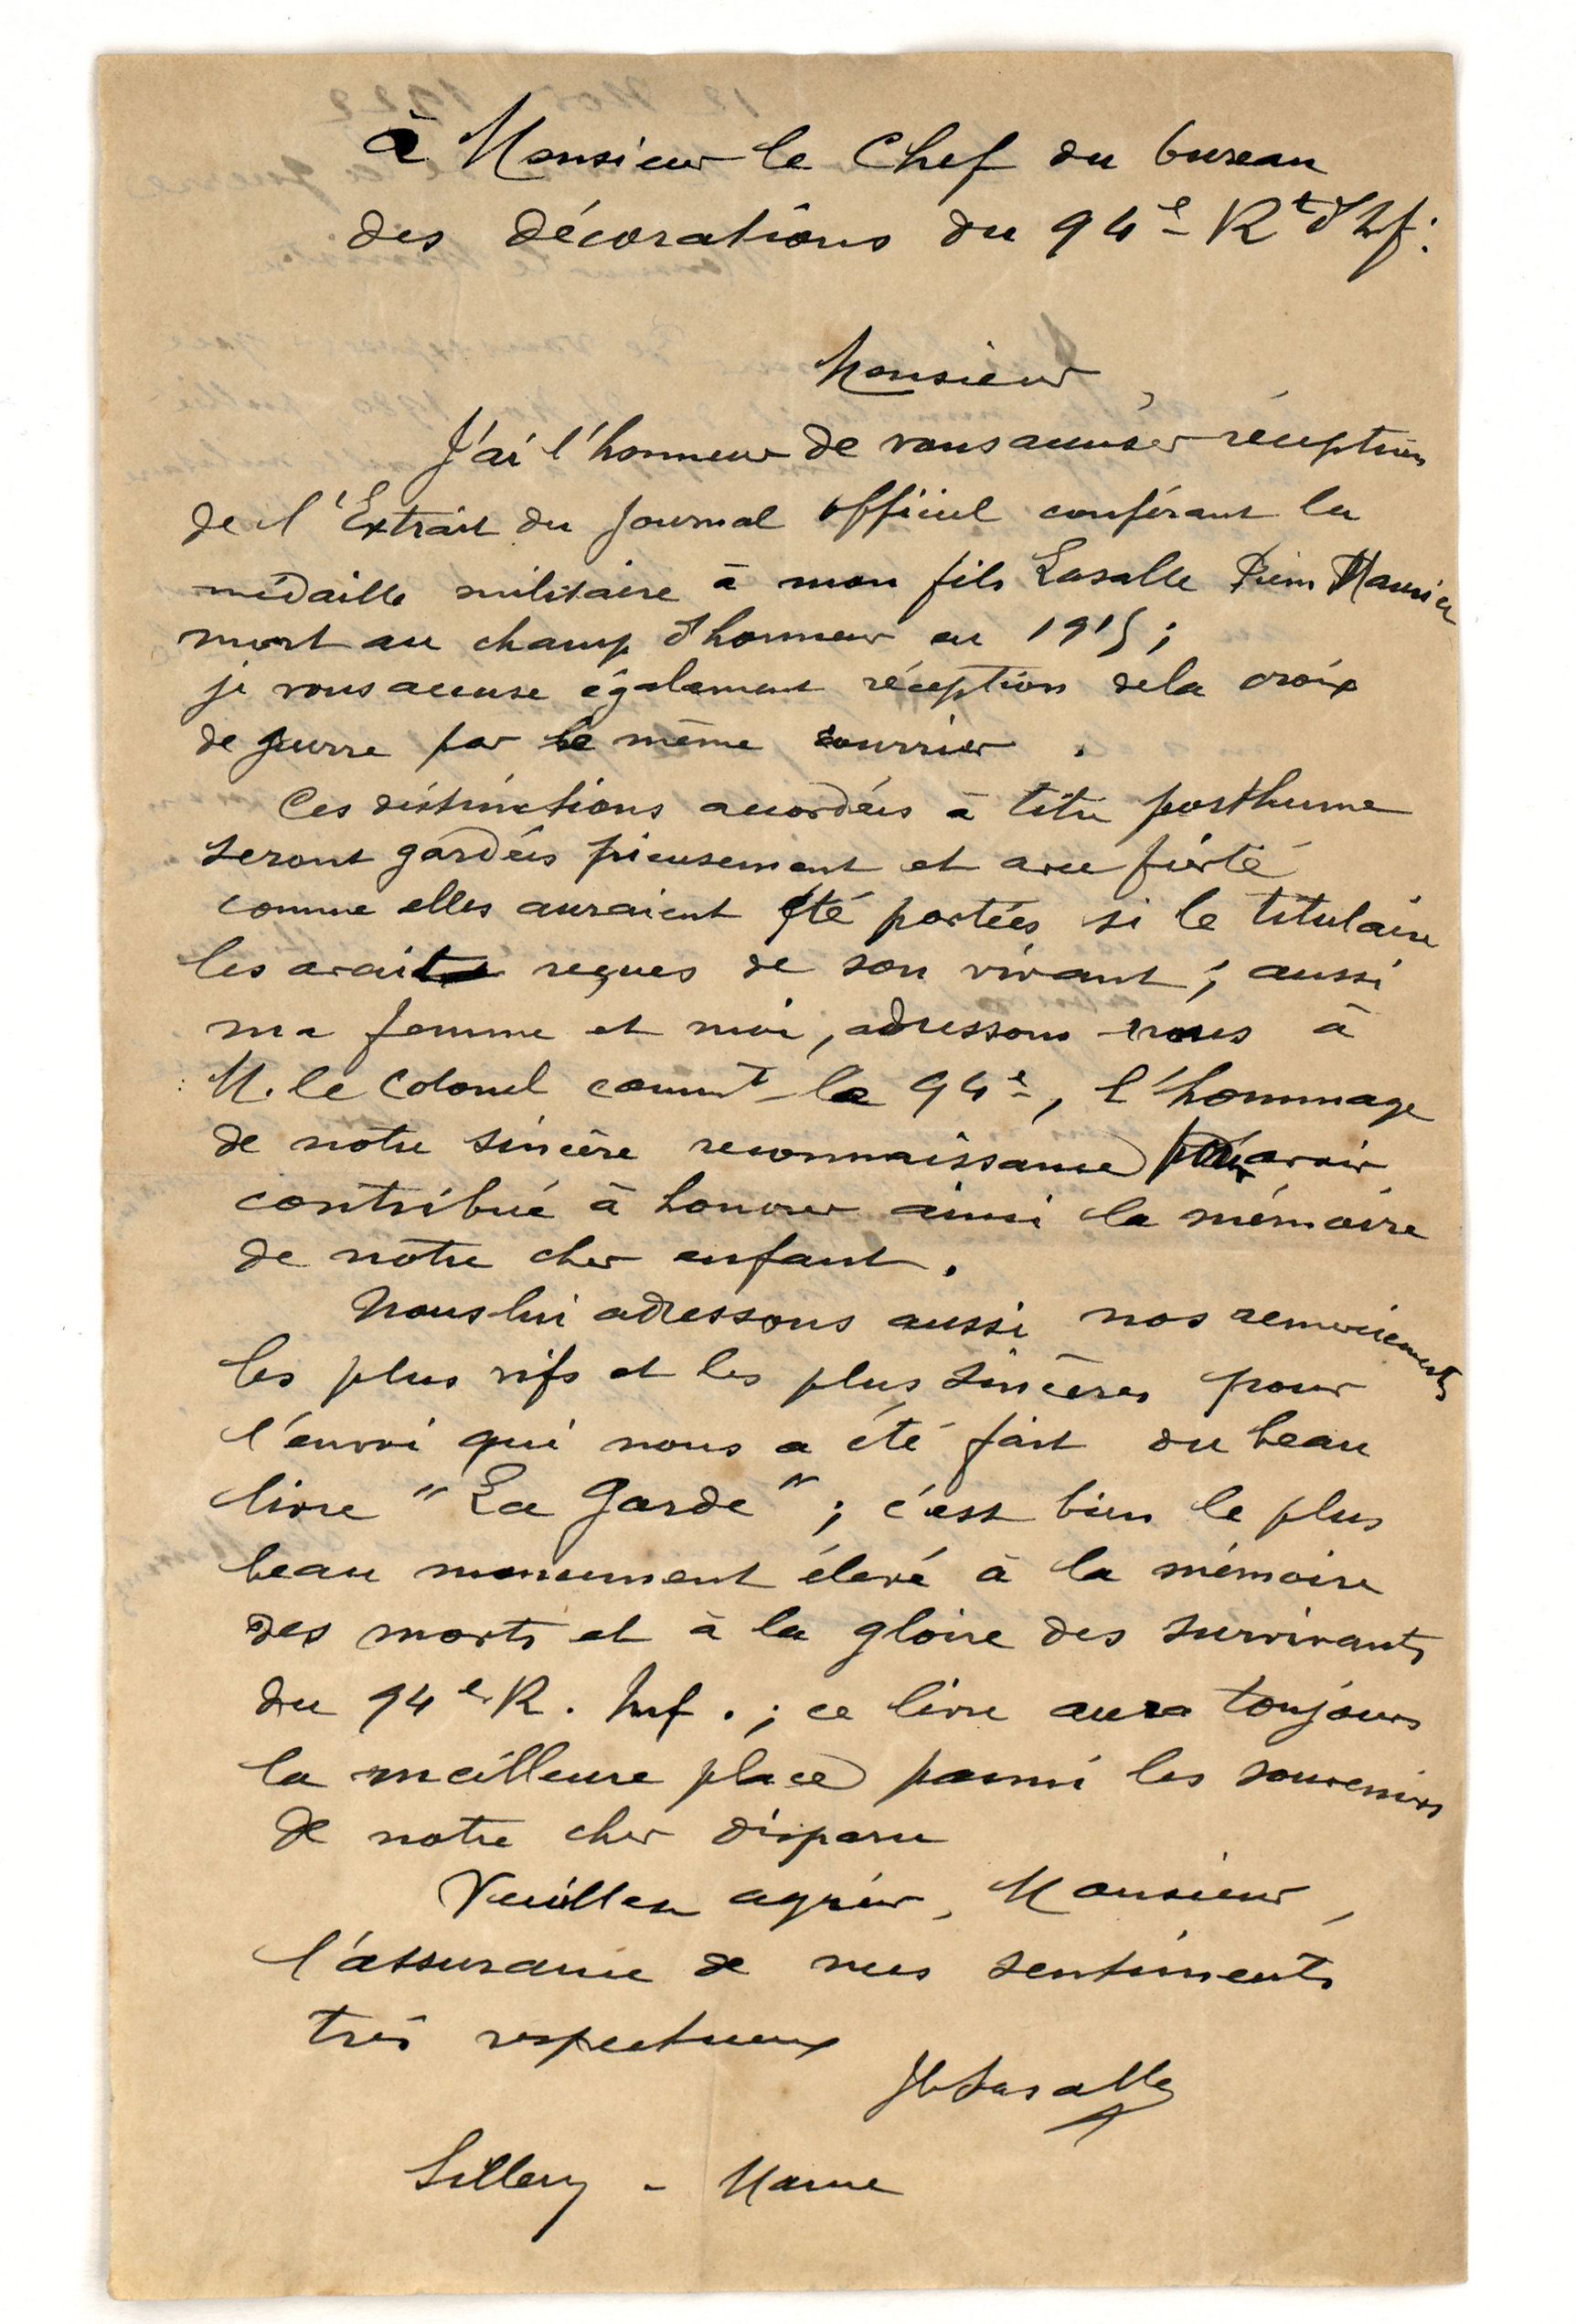 à Monsieur le Chef du bureau
des décorations du 94e Rt d'Inf.
Monsieur,
J'ai l'honneur de vous accuser réception
de l'Extrait du Journal Officiel conférant la
médaille militaire à mon fils Lasalle Pierre Maurice
mort au champ d'honneur en 1915 ;
je vous accuse également réception de la croix
de guerre par le même courrier .
Ces distinctions accordées à titre posthume
seront gardées pieusement et avec fierté
comme elles auraient été portées si le titulaire
les avait reçues de son vivant ; aussi
ma femme et moi, adressons nous à
M. le Colonel commt le 94e, l'hommage
de notre sincère reconnaissance pour avoir
contribué à honorer ainsi la mémoire
de notre cher enfant.
Nous lui adressons aussi nos remerciements
les plus vifs et les plus sincères pour
l'envoi qui nous a été fait du beau
livre "La Garde" ; c'est bien le plus
beau monument élevé à la mémoire
des morts et à la gloire des survivants
du 94e R. Inf. ; ce livre aura toujours
la meilleure place parmi les souvenirs
de notre cher disparu
Veuillez agréer, Monsieur,
l'assurance de mes sentiments
très respectueux
Lasalle
Sillery - Marne